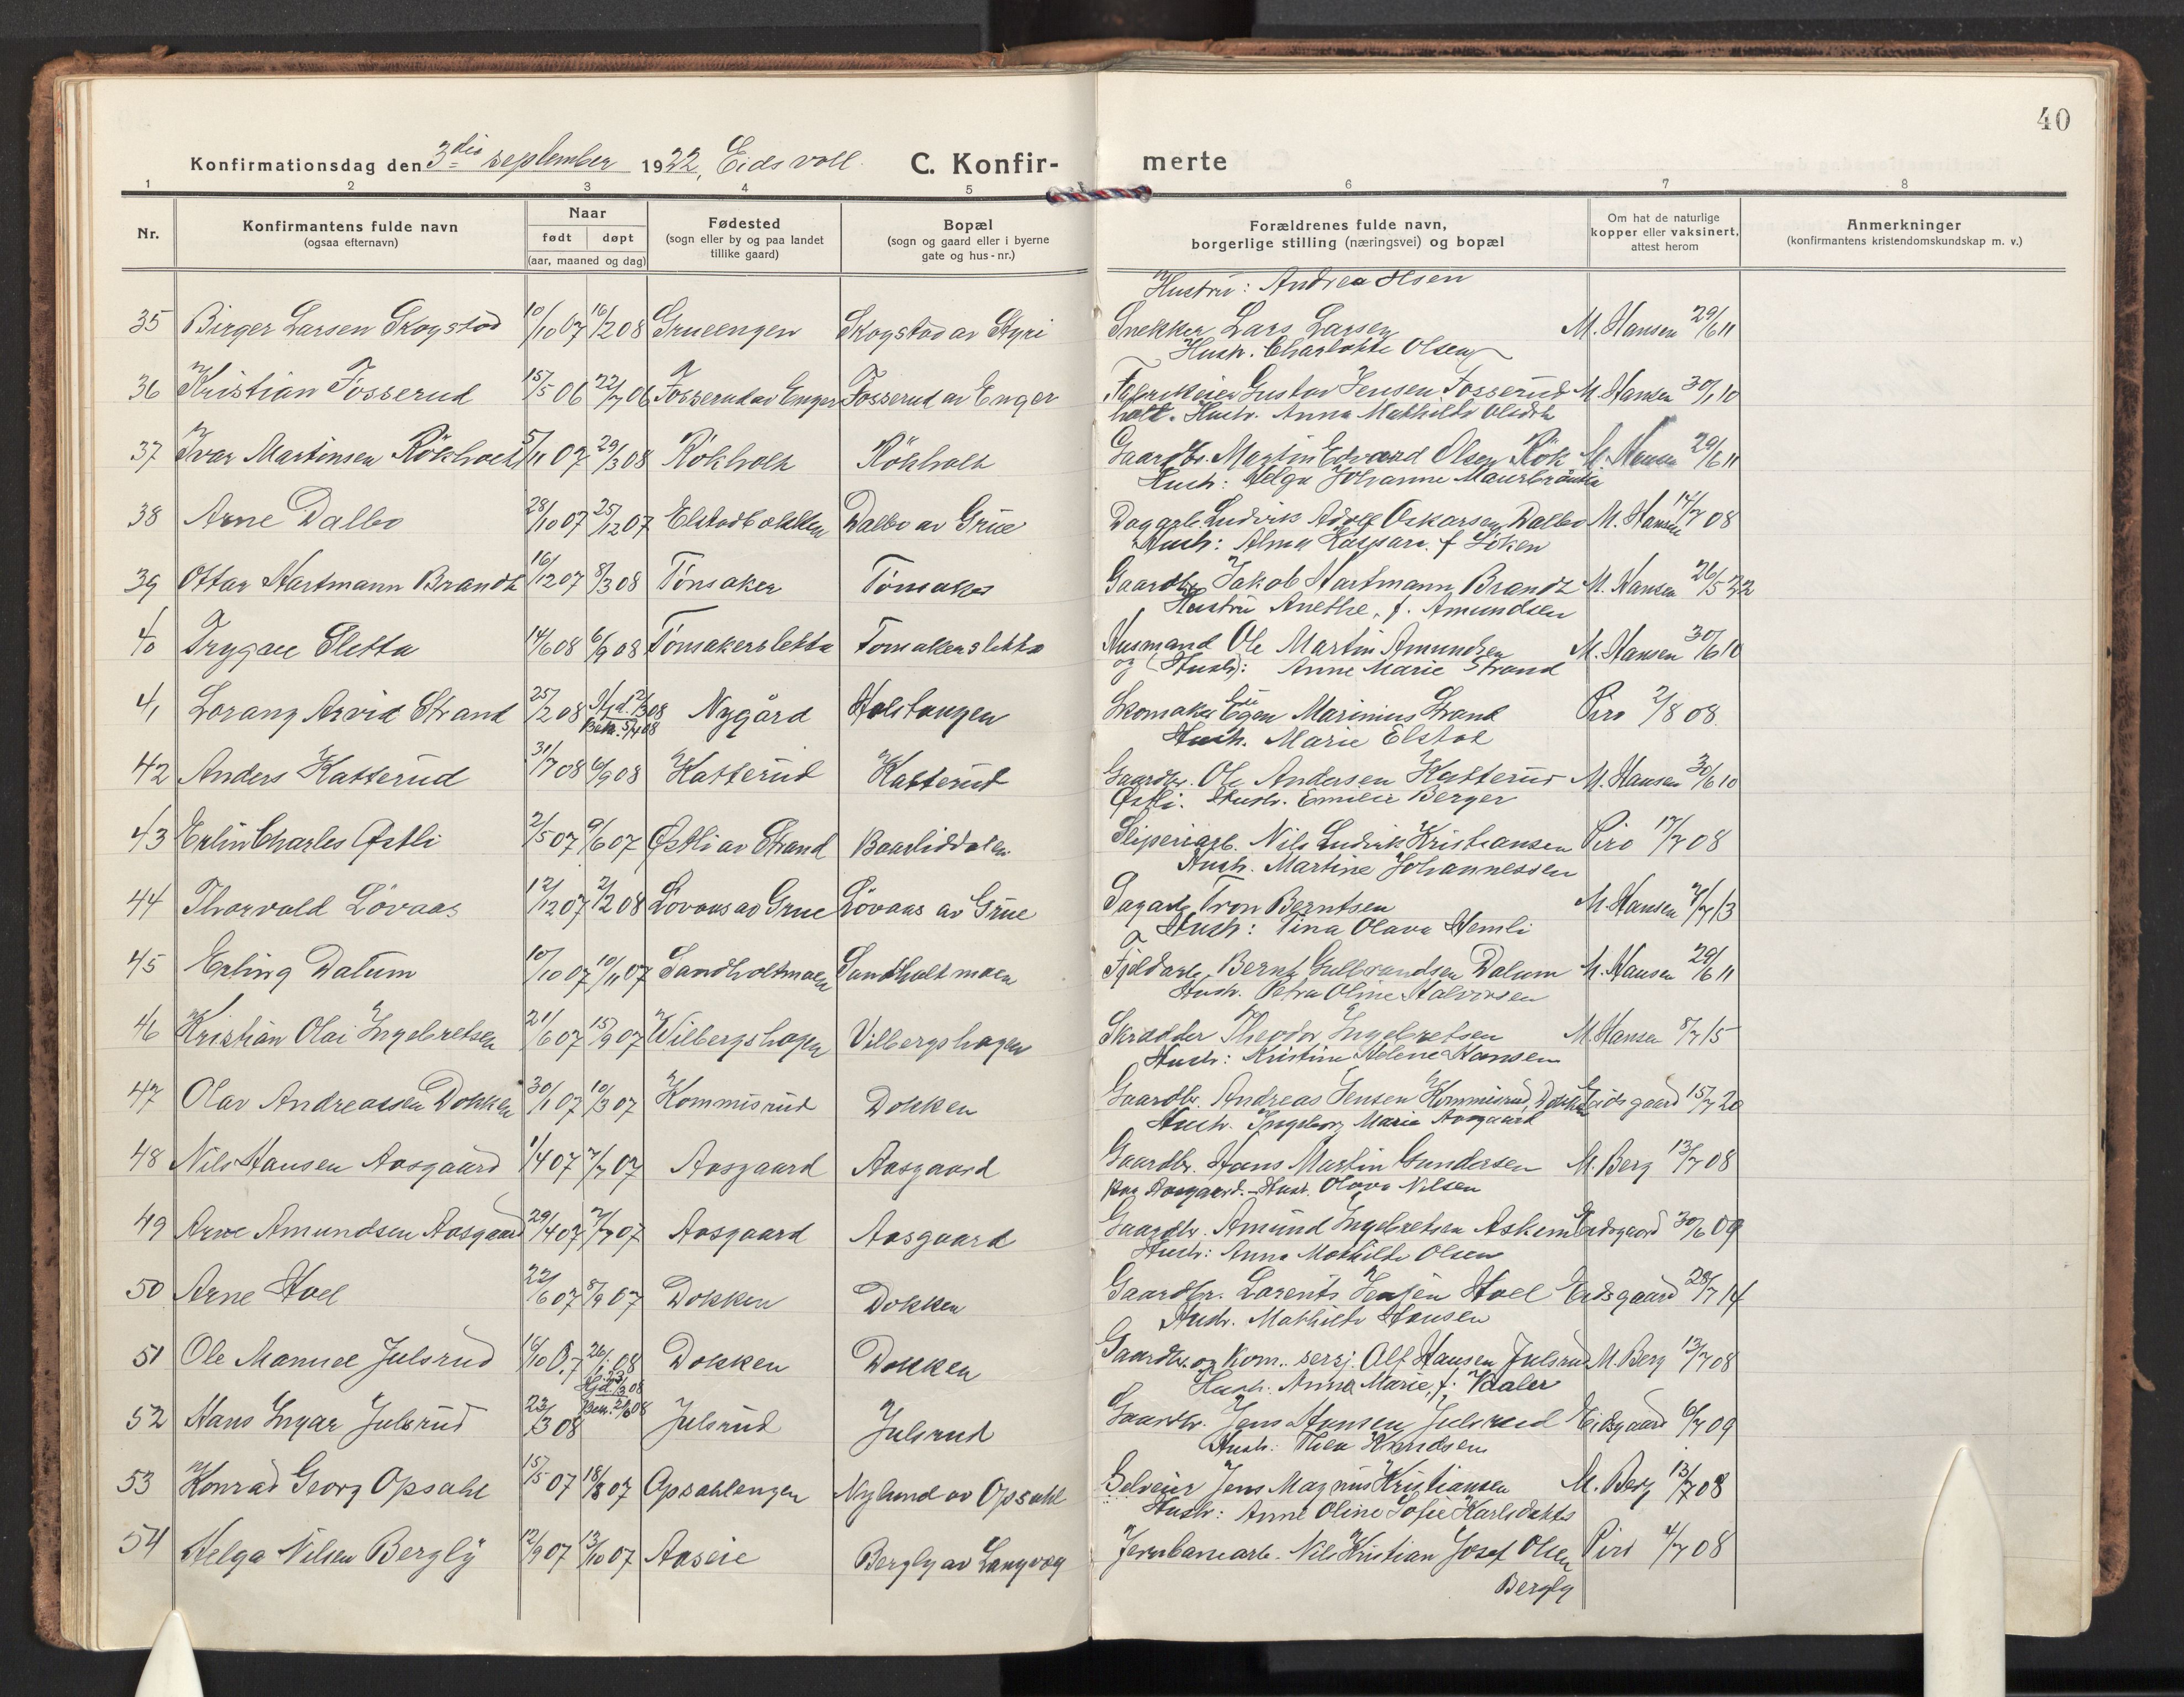 40
Konfirmationsdag den 3die september 1922, Eidsvoll. C. Konfir- merte
1 2 3 4 5 6 7 8
Nr. Konfirmantens fulde navn (ogsaa efternavn) Naar født døpt (aar, maaned og dag) Fødested (sogn eller by og paa landet tillike gaard) Bopæl (sogn og gaard eller i byerne gate og hus-nr.) Forældrenes fulde navn, borgerlige stilling (næringsvei) og bopæl Om hat de naturlige kopper eller vaksinert, attest herom Anmerkninger (konfirmantens kristendomskundskap m. v.)
Hustru: Andrea Olsen
35 Birger Larsen Skogstad 10/10 07 16/2 08 Grueengen Skogstad av Styri Snekker Lars Larsen M. Hansen 29/6 11
Hustr. Charlotte Olsen
36 Kristian Fosserud 15/5 06 22/7 06 Fosserud av Enger Fosserud av Enger Fabrikeier Gustav Jensen Fosserud M. Hansen 30/6 10
holt. Hustr. Anna Mathilde
37 Ivar Martinsen Rökholt 5/11 07 29/3 08 Rökholt Rökholt Gaardbr. Martin Edvard Olsen Rök M. Hansen 29/6 11
Hustr: Helga Johanne
38 Arne Dalbo 28/10 07 25/12 07 Elstadbakken Dalbo av Grue Dagarb. Ludvik Adolf Oskarsen Dalbo M. Hansen 14/7 08
Hustr: Alma Kaspara f. Löken
39 Ottar Hartmann Brandt 16/12 07 8/3 08 Tönsaker Tönsaker Gaardbr. Jakob Hartmann Brandt M. Hansen 26/5 22
Hustru Anethe, f. Amundsen
40 Trygve Sletta 14/6 08 6/9 08 Tönsakersletta Tönsakersletta Husmand Ole Martin Amundsen M. Hansen 30/6 10
og Hustr: Anne Marie Strand
41 Lorang Arvid Strand 25/2 08 Hjd. 12/3 08 Bekr. 5/7 08 Nygård Holstangen Skomaker Egen Marinius Strand Piro 2/8 08
Hustr. Marie Elstad
42 Anders Katterud 31/7 08 6/9 08 Katterud Katterud Gaardbr. Ole Andersen Katterud M. Hansen 30/6 10
Østli. Hustr. Emilie Berger
43 Erlin Charles Østli 2/5 07 9/6 07 Østli av Strand Baarliddalen Sliperiarb. Nils Ludvik Kristiansen Piro 17/7 08
Hustr. Martine Johannessen
44 Thorvald Lövaas 12/12 07 2/2 08 Lövaas av Grue Lövaas av Grue Dagarb. Tron Berntsen M. Hansen 4/7 13
Hustr: Tina Olava Hemli
45 Erling Dalum 10/10 07 10/11 07 Sandholtmoen Sandholtmoen Fjeldarb. Bernt Gulbrandsen Dalum M. Hansen 29/6 11
Hustr. Petra Oline Halvorsen
46 Kristian Olai Ingebretsen 21/6 07 15/9 07 Wilbergshagen Vilbergshagen Skrædder Theodor Ingebretsen M. Hansen 8/7 15
Hustr: Kristine Helene Hansen
47 Olav Andreassen Dokken 30/1 07 10/3 07 Kommisrud Dokken Gaardbr. Andreas Jensen Kommisrud, Dokken Eidsgaard 15/7 20
Hustr. Ingeborg Marie Aasgaard
48 Nils Hansen Aasgaard 1/4 07 7/7 07 Aasgaard Aasgaard Gaardbr. Hans Martin Gundersen M. Berg 13/7 08
Aasgaard. Hustr. Olava Nilsen
49 Arne Amundsen Aasgaard 29/4 07 7/7 07 Aasgaard Aasgaard Gaardbr. Amund Ingebretsen Askem Eidsgaard 30/6 09
Hustr: Anna Mathilde Olsen
50 Arne Hoel 22/6 07 8/9 07 Dokken Dokken Gaardbr. Lorents Jensen Hoel Eidsgaard 28/7 14
Hustr. Mathilde Hansen
51 Ole Manuel Julsrud 16/10 07 26/1 08 Dokken Dokken Gaardbr. og Kom. serj. Alf Hansen Julsrud M. Berg 13/7 08
Hustr. Anna Marie, f. Vaaler
52 Hans Ingar Julsrud 23/3 08 Hjd. Bekr. 08 Julsrud Julsrud Gaardbr. Jens Hansen Julsrud Eidsgaard 6/7 09
Hustr. Thea Knudsen
53 Konrad Georg Opsahl 15/5 07 18/8 07 Opsahlengen Nylund av Opsahl Selveier Jens Magnus Kristiansen M. Berg 13/7 08
Hustr: Anne Oline Sofie Karlsdatter
54 Helga Nilsen Bergly 12/9 07 13/10 07 Aaseie Bergly av Langvag Jernbanearb. Nils Kristian Josef Olsen Piro 4/7 08
Bergly